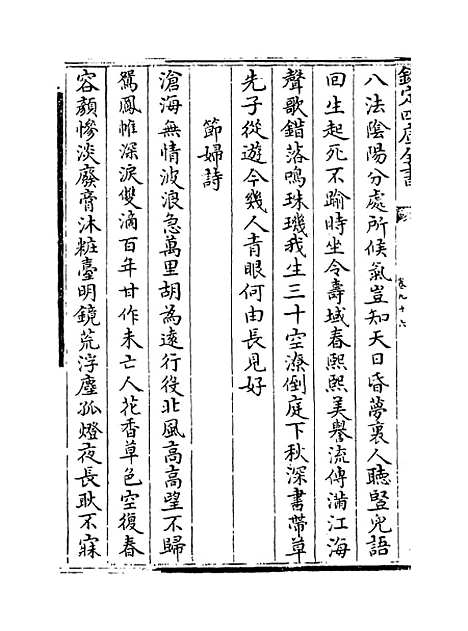 欽定四庫全書
卷九十六
八法陰陽分處所候氣豈知天日昏夢裏人聽豎兒語
回生起死不踰時坐令壽域春熙熙美譽流傳滿江海
聲歌錯落鳴珠璣我生三十空潦倒庭下秋深書帶草
先子從遊今幾人青眼何由長見好
節婦詩
滄海無情波浪急萬里胡為遠行役北風高高望不歸
鴛鳳帷深淚雙滴百年甘作未亡人花香草色空復春
容顏慘淡廢膏沐粧臺明鏡荒浮塵孤燈夜長耿不寐